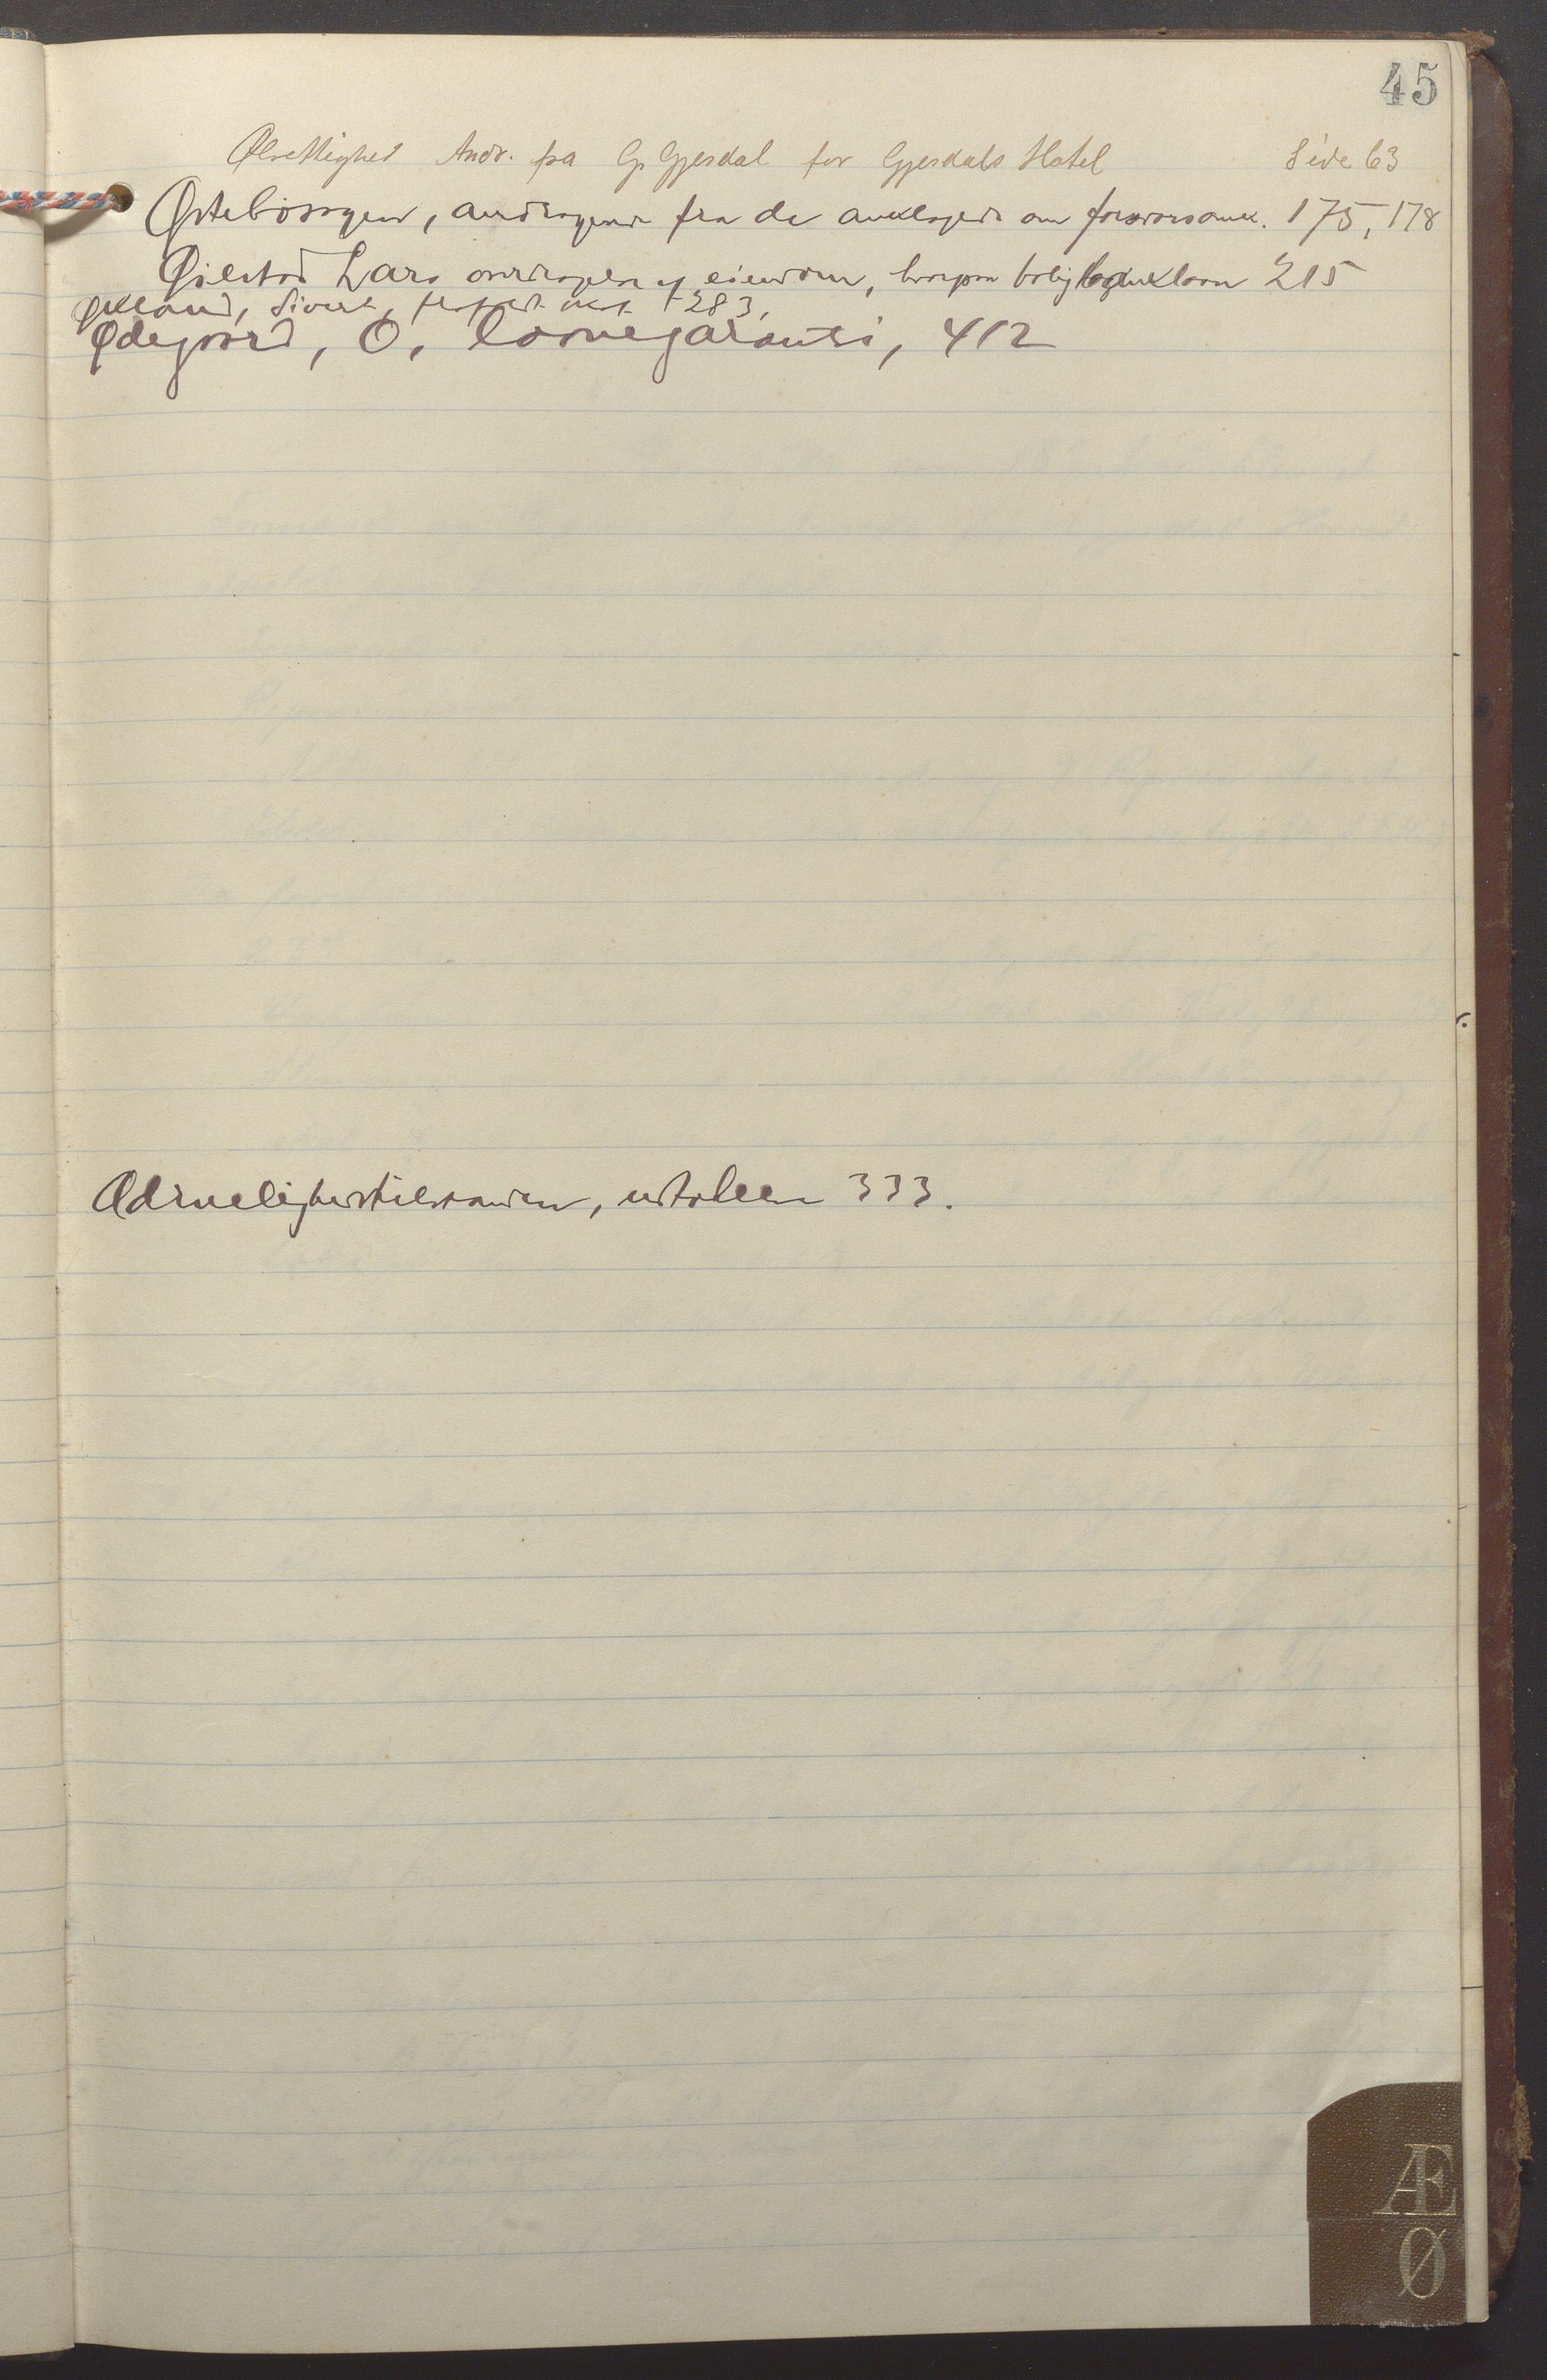 45
Ølrettighed Andr. fra G. Gjesdal for Gjesdals Hotel Side 63
Østebösagen, andragende fra de anklagede om forsvarsomk. 175, 178
Øilestad Lars overdragelse af eiendom, hvorpaa boligbanklaan 215
Økland, Sivert, 283,
Ødegaard, O, laanegaranti, 412
Ædruelighedstilstanden, udtalelse 333.
Æ
Ø